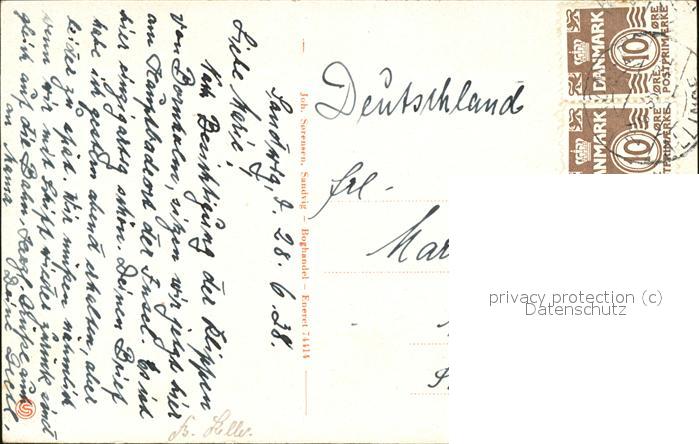 Sandvig, d. 28.6.38.
Liebe Marie!
Nach Besichtigung der Klippen
von Bornholm, sitzen wir jetzt hier
am Hauptbadeort der Insel. Es ist
hier einzigartig schön. Deinen Brief
habe ich gestern abend erhalten, aber
leider zu spät. Wir müssen nämlich
wenn wir mit Schiff wieder zurück sind
gleich auf die Bahn. Herzl.
an Mama
Deine
Joh. Sørensen, Sandvig – Boghandel – Eneret 74414
Deutschland
Frl.
Mar
DANMARK
10
ØRE
POSTFRIMÆRKE
DANMARK
10
ØRE
POSTFRIMÆRKE
privacy protection (c)
Datenschutz